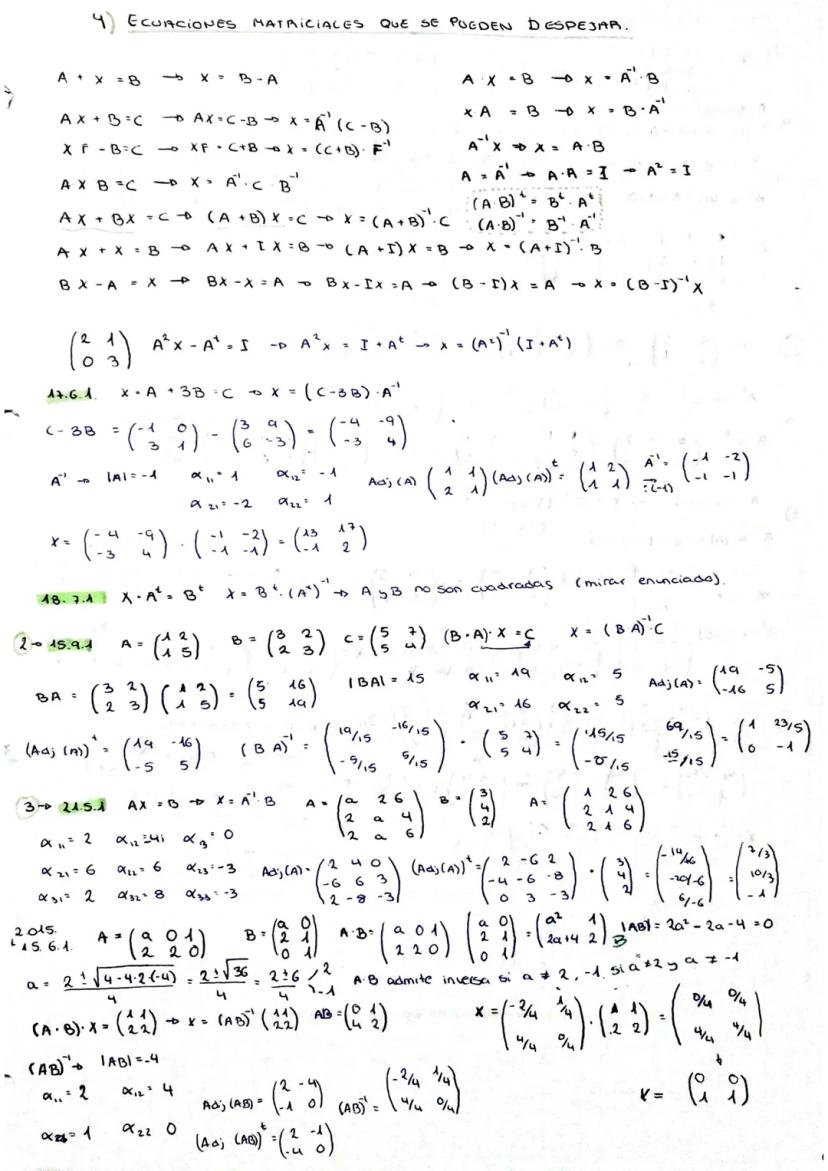 4) ECUACIONES MATRICIALES QUE SE PUEDEN DESPEJAR.
A + X = B → X = B - A
A · X = B → X = A⁻¹ · B
AX + B = C → AX = C - B → X = A⁻¹ (C - B)
XA = B → X = B · A⁻¹
XF - B = C → XF = C + B → X = (C + B) · F⁻¹
A⁻¹X → X = A · B
AXB = C → X = A⁻¹ · C · B⁻¹
A = A⁻¹ → A · A = I → A² = I
(A·B)ᵗ = Bᵗ · Aᵗ
AX + BX = C → (A + B) X = C → X = (A + B)⁻¹ · C
(A·B)⁻¹ = B⁻¹ · A⁻¹
AX + X = B → AX + IX = B → (A + I) X = B → X = (A + I)⁻¹ · B
BX - A = X → BX - X = A → BX - IX = A → (B - I) X = A → X = (B - I)⁻¹ X
(2 1 / 0 3) A²X - Aᵗ = I → A²X = I + Aᵗ → X = (A²)⁻¹ (I + Aᵗ)
17.6.1. X · A + 3B = C → X = (C - 3B) · A⁻¹
C - 3B = (-1 0 / 3 1) - (3 9 / 6 -3) = (-4 -9 / -3 4)
A⁻¹ → |A| = -1 α₁₁ = 1 α₁₂ = -1 Adj(A) (1 1 / 2 1) (Adj(A))ᵗ = (1 2 / 1 1) :(-1) A⁻¹ = (-1 -2 / -1 -1)
α₂₁ = -2 α₂₂ = 1
X = (-4 -9 / -3 4) · (-1 -2 / -1 -1) = (13 17 / -1 2)
18.7.1 X · Aᵗ = Bᵗ X = Bᵗ · (Aᵗ)⁻¹ → A y B no son cuadradas (mirar enunciado).
2 → 15.9.1 A = (1 2 / 1 5) B = (3 2 / 2 3) C = (5 7 / 5 4) (B · A) · X = C X = (BA)⁻¹ C
BA = (3 2 / 2 3) (1 2 / 1 5) = (5 16 / 5 19) |BA| = 15 α₁₁ = 19 α₁₂ = 5 Adj(A) = (19 -5 / -16 5)
α₂₁ = 16 α₂₂ = 5
(Adj(A))ᵗ = (19 -16 / -5 5) (BA)⁻¹ = (19/15 -16/15 / -5/15 5/15) · (5 7 / 5 4) = (15/15 69/15 / -0/15 -15/15) = (1 23/5 / 0 -1)
3 → 21.5.1 AX = B → X = A⁻¹ · B A = (a 2 6 / 2 a 4 / 2 a 6) B = (3 / 4 / 2) A = (1 2 6 / 2 1 4 / 2 1 6)
α₁₁ = 2 α₁₂ = 4 α₃ = 0
α₂₁ = 6 α₂₂ = 6 α₂₃ = -3 Adj(A) = (2 4 0 / -6 6 3 / 2 -8 -3) (Adj(A))ᵗ = (2 -6 2 / -4 -6 -8 / 0 3 -3) · (3 / 4 / 2) = (-14/-6 / -20/-6 / 6/-6) = (7/3 / 10/3 / -1)
α₃₁ = 2 α₃₂ = 8 α₃₃ = -3
2015.
15.6.1. A = (a 0 1 / 2 2 0) B = (a 0 / 2 1 / 0 1) A·B = (a 0 1 / 2 2 0) (a 0 / 2 1 / 0 1) = (a² 1 / 2a+4 2) |AB| = 2a² - 2a - 4 = 0
a = 2 ± √4 - 4·2·(-4) / 4 = 2 ± √36 / 4 = 2 ± 6 / 4 2 -1 A·B admite inversa si a ≠ 2, -1. si a ≠ 2 y a ≠ -1
(A · B) · X = (1 1 / 2 2) → X = (AB)⁻¹ (1 1 / 2 2) AB = (0 1 / 4 2) X = (-2/4 1/4 / 4/4 0/4) · (1 1 / 2 2) = (0/4 0/4 / 4/4 4/4)
(AB)⁻¹ → |AB| = -4
α₁₁ = 2 α₁₂ = 4 Adj(AB) = (2 -4 / -1 0) (AB)⁻¹ = (-2/4 1/4 / 4/4 0/4) X = (0 0 / 1 1)
α₂₁ = 1 α₂₂ 0 (Adj(AB))ᵗ = (2 -1 / -4 0)